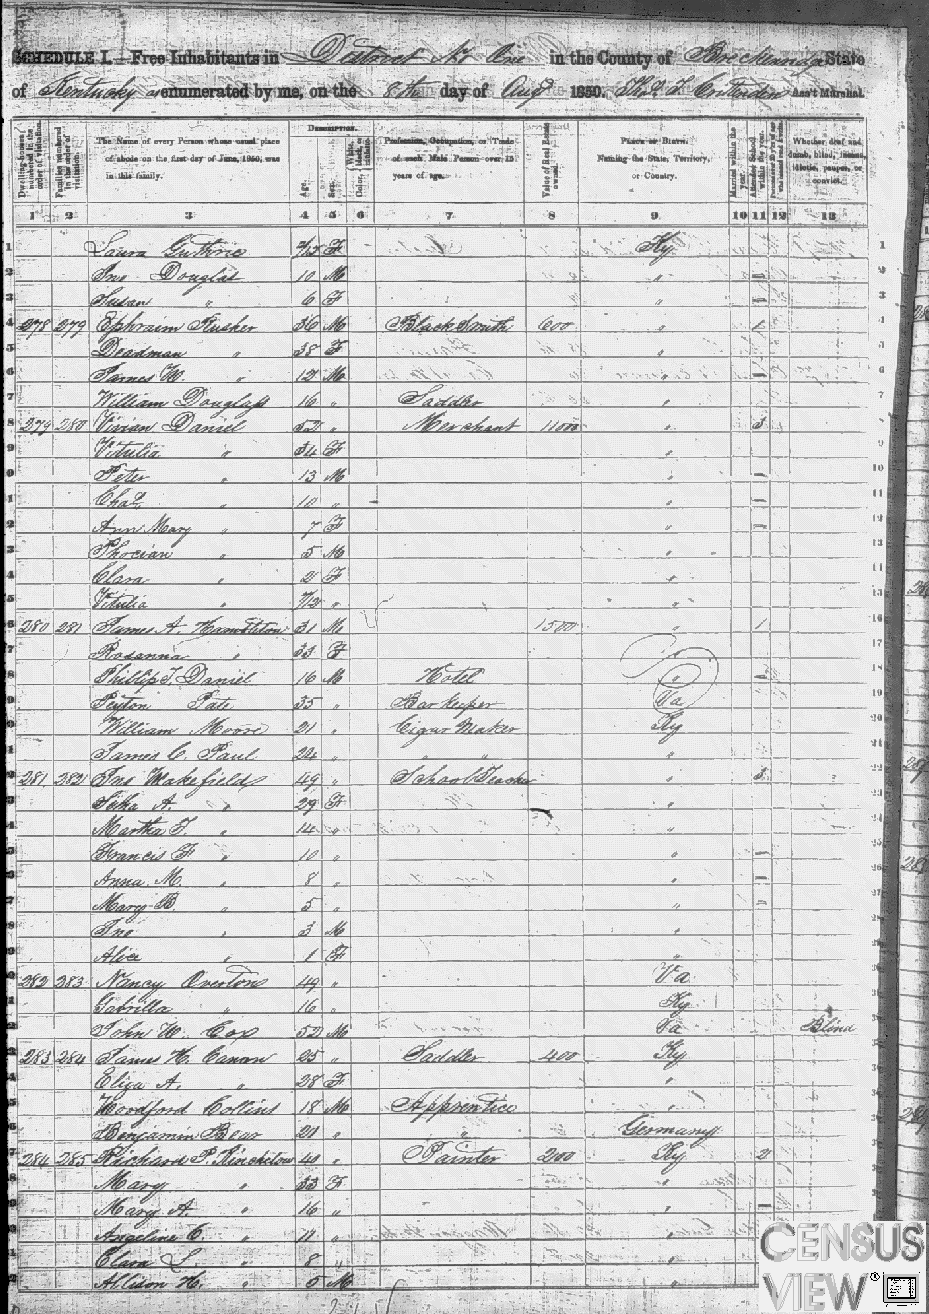 SCHEDULE I.—Free Inhabitants in District No One in the County of Breckenridge State
of Kentucky enumerated by me, on the 8th day of Augt 1850. Ass't Marshal.
Dwelling-houses numbered in the order of visitation.
Families numbered in the order of visitation.
The Name of every Person whose usual place of abode on the first day of June, 1850, was in this family.
Description.
Age.
Sex.
Color,
Profession, Occupation, or Trade of each Male Person over 15 years of age.
Value of Real Estate owned.
Place of Birth. Naming the State, Territory, or Country.
Married within the year.
Attended School within the year.
Whether deaf and dumb, blind, insane, idiotic, pauper, or convict.
1 2 3 4 5 6 7 8 9 10 11 12 13
1 Laura Guthrie F Ky
2 Jno Douglas 10 M "
3 Susan " 6 F "
4 278 279 Ephraim Rusher 36 M Black Smith 600 " 1
5 Deadman " 38 F "
6 James W. " 12 M "
7 William Douglass 16 " Saddler "
8 279 280 Vivian Daniel 52 " Merchant 11000 " 3
9 Vitulia " 34 F "
Peter " 13 M "
Chas " 10 " "
Ann Mary " 7 F "
Phocian " 5 M "
Clara " 2 F "
Vitulia " 7/12 " "
280 281 James A. Hambleton 31 M 1500 " 1
Rosanna " 33 F "
Phillip T. Daniel 16 M Hotel "
Peyton Pate 35 " Barkeeper Va
William Moore 21 " Cigar Maker Ky
James C. Paul 24 " " " "
281 282 Jno Wakefield 49 " School Teacher " 3
A. " 29 F "
Martha J. " 14 " "
Francis F " 10 " "
Anna M. " 8 " "
Mary B. " 5 " "
Jno " 3 M "
Alice " 1 F "
282 283 Nancy Overton 49 " Va
Gabrilla " 16 " Ky
John W. Cox 52 M Va Blind
283 284 James H. Canan 25 " Saddler 400 Ky
Eliza A. " 28 F "
Woodford Collins 18 M Apprentice "
Benjamin Bear 21 " " Germany
284 285 Richard P. 40 " Painter 200 Ky 2
Mary " 33 F "
Mary A. " 16 " "
Angeline C. " 11 " "
Clara L " 8 " "
Allison H. " 5 M "
CENSUS
VIEW®